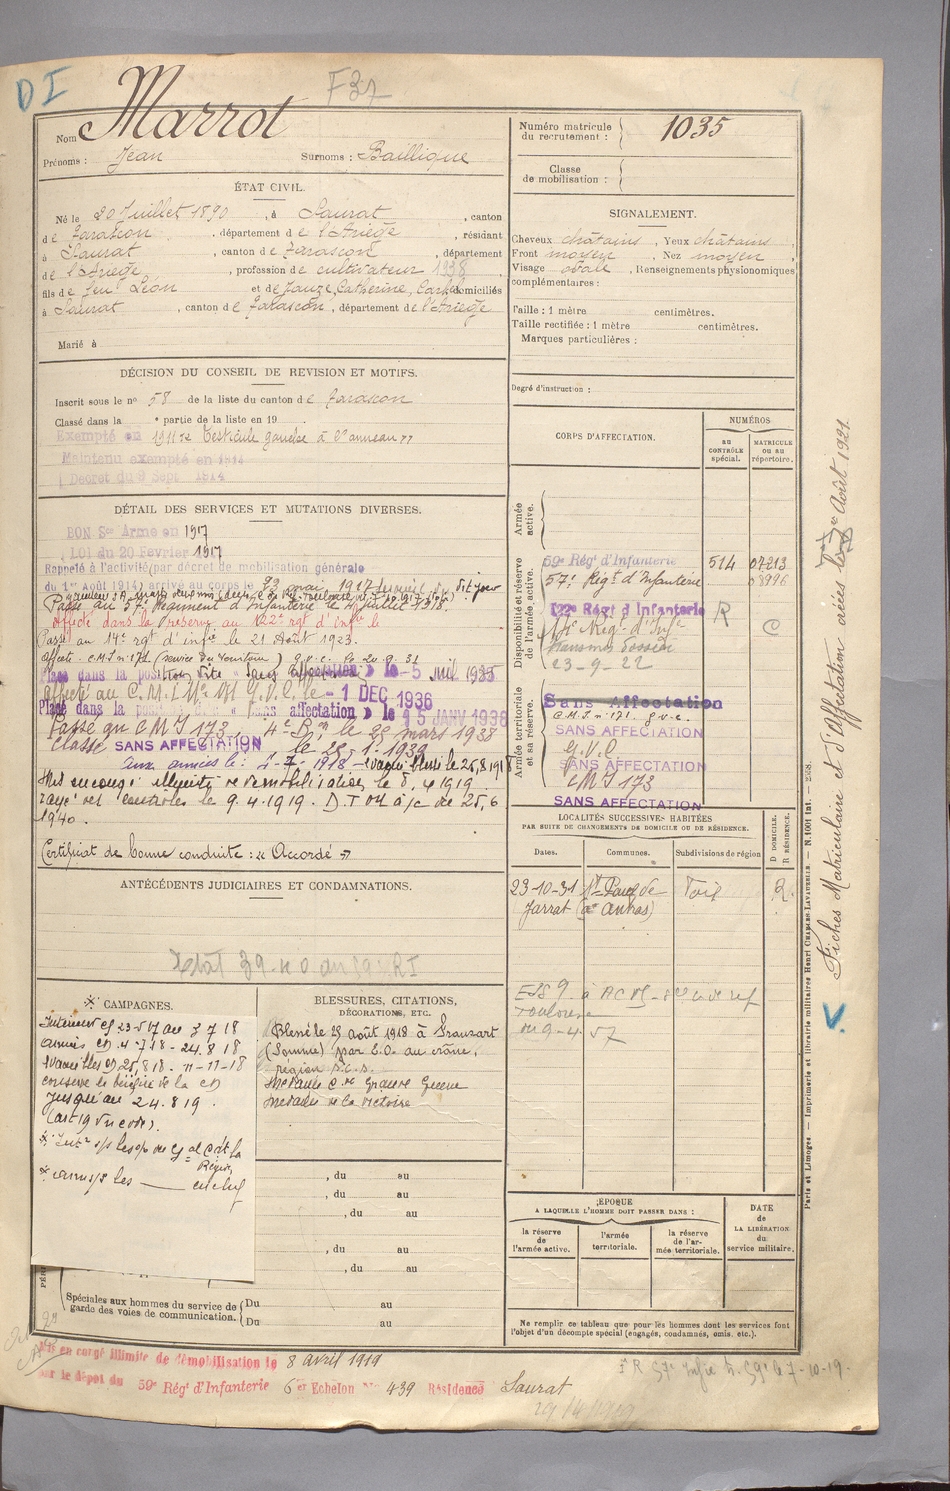 D I
F 37
Nom Marrot
Prénoms : Jean Surnoms : Baillique
ÉTAT CIVIL.
Né le 20 Juillet 1890, à Saurat, canton
de Tarascon, département de l'Ariège, résidant
à Saurat, canton de Tarascon, département
de l'Ariège, profession de cultivateur 1938
fils de feu Léon et de Jauze, Catherine, domiciliés
à Saurat, canton de Tarascon, département de l'Ariège
Marié à
DÉCISION DU CONSEIL DE REVISION ET MOTIFS.
Inscrit sous le nº 58 de la liste du canton de Tarascon
Classé dans la e partie de la liste en 19
Exempté en 1911 "Testicule gauche à l'anneau"
Maintenu exempté en 1914
Décret du 9 Sept 1914
DÉTAIL DES SERVICES ET MUTATIONS DIVERSES.
BON Sce Armé en 1917
Loi du 20 Février 1917
Rappelé à l'activité (par décret de mobilisation générale
du 1er Août 1914) arrivé au corps le 23 mai 1917 dudit jour
Passé au 57e Régiment d'Infanterie le 4 Juillet 1918.
Affecté dans la réserve au 122e rgt d'infie le
Passé au 14e rgt d'infie le 21 Août 1923.
Affecté C.M.I nº 171 (service du Territoire) g.v.c. 20.9.31
Placé dans la position dite « Sans affectation » le 5 1935
Affecté au C.M.I Nº 171 G.V.C. le 1 DEC 1936
Placé dans la position dite « Sans affectation » le 15 JANV 1938
Passé au C M I 173, le 25 mars 1938
Classé SANS AFFECTATION, le 25.1.1939
aux armées le : 4-7-1918 - évacué blessé le 25.8.1918
Mis en congé illimité de démobilisation le 8.4.1919
rayé des contrôles le 9.4.1919. D.T du à/c du 25.6
1940.
Certificat de bonne conduite : « Accordé »
ANTÉCÉDENTS JUDICIAIRES ET CONDAMNATIONS.
CAMPAGNES.
Intérieur CS 23-5-17 au 3 7 18
Armées CD 4-7-18 - 24.8 18
Evac. blessé CD 25.8 18. 11-11-18
conserve le bénéfice de la CD
jusqu'au 24.8 19.
(art 19 du code).
BLESSURES, CITATIONS,
DÉCORATIONS, ETC.
Blessé le 25 août 1918 à Grauzart
(Somme) par E.O. au crâne,
région
Médaille Cve Grande Guerre
Médaille de la Victoire
, du au
, du au
, du au
, du au
, du au
Spéciales aux hommes du service de
garde des voies de communication.
Du au
Du au
Mis en congé illimité de démobilisation le 8 avril 1919
par le dépôt du 59e Régt d'Infanterie 6e Echelon Nº 439 Résidence Saurat
Numéro matricule
du recrutement : 1035
Classe
de mobilisation :
SIGNALEMENT.
Cheveux châtains, Yeux châtains,
Front moyen, Nez moyen,
Visage ovale, Renseignements physionomiques
complémentaires :
Taille : 1 mètre centimètres.
Taille rectifiée : 1 mètre centimètres.
Marques particulières :
Degré d'instruction :
CORPS D'AFFECTATION.
NUMÉROS
au CONTRÔLE spécial.
MATRICULE OU AU répertoire.
Armée active.
Disponibilité et réserve de l'armée active.
59e Régt d'Infanterie 514 07213
57e Régt d'Infanterie 08996
122e Régt d'Infanterie R
14e Régt d'Infie C
transmis dossier
23-9-22
Armée territoriale et sa réserve.
Sans Affectation
C.M.I nº 171. g.v.c.
SANS AFFECTATION
G.V.C
SANS AFFECTATION
CMI 173
SANS AFFECTATION
LOCALITÉS SUCCESSIVES HABITÉES
PAR SUITE DE CHANGEMENTS DE DOMICILE OU DE RÉSIDENCE.
Dates. Communes. Subdivisions de région
D DOMICILE. R RÉSIDENCE.
23-10-31 St Paul de Foix R.
Jarrat
Toulouse
du 9-4-57
ÉPOQUE
A LAQUELLE L'HOMME DOIT PASSER DANS :
la réserve de l'armée active.
l'armée territoriale.
la réserve de l'armée territoriale.
DATE de LA LIBÉRATION du service militaire.
Ne remplir ce tableau que pour les hommes dont les services font
l'objet d'un décompte spécial (engagés, condamnés, omis, etc.).
Paris et Limoges. — Imprimerie et librairie militaires Henri CHARLES-LAVAUZELLE. — N. 1001 int. — 2/28.
Fiches Matriculaire et d'Affectation créées le Août 1921.